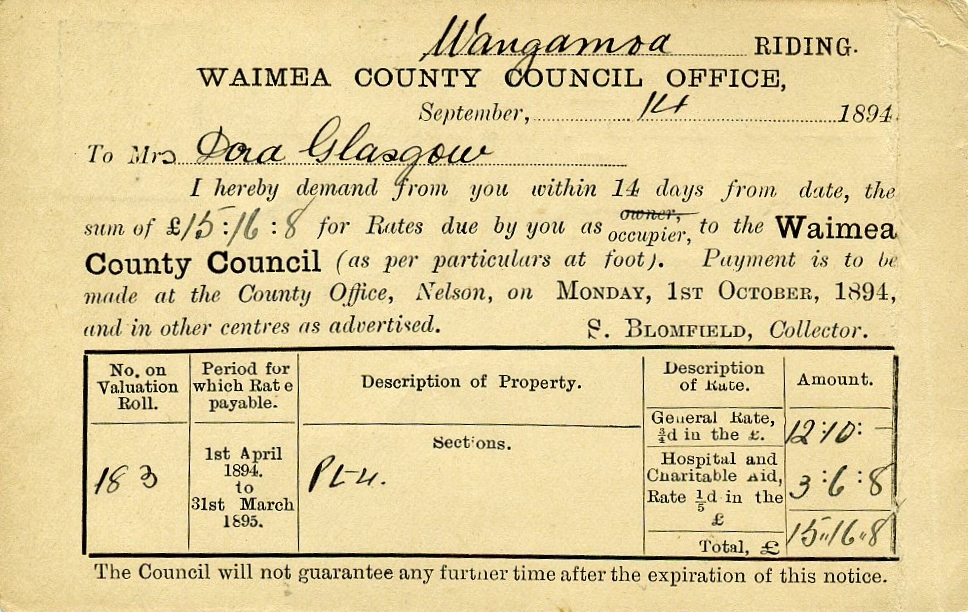 Wangamoa RIDING.
WAIMEA COUNTY COUNCIL OFFICE,
September, 14 1894.
To Mrs Dora Glasgow
I hereby demand from you within 14 days from date, the
sum of £15:16:8 for Rates due by you as owner, occupier, to the Waimea
County Council (as per particulars at foot). Payment is to be
made at the County Office, Nelson, on MONDAY, 1ST OCTOBER, 1894,
and in other centres as advertised. S. BLOMFIELD, Collector.
No. on Valuation Roll.
Period for which Rate payable.
Description of Property.
Description of Rate.
Amount.
183
1st April
1894.
to
31st March
1895.
Sections.
Pt 4.
General Rate,
¾d in the £.
12:10:-
Hospital and
Charitable Aid,
Rate ⅕d in the
£
3:6:8
Total, £
15"16"8
The Council will not guarantee any further time after the expiration of this notice.